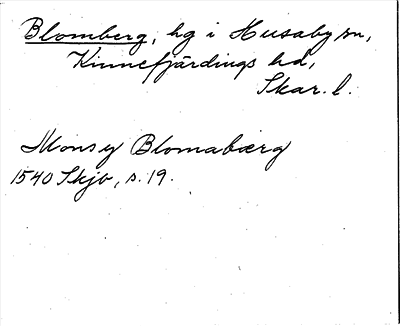 Blomberg, hg i Husaby sn,
Kinnefjärdings hd,
Skar. l.
Mons y Blomabærg
1540 Skjb, s. 19.